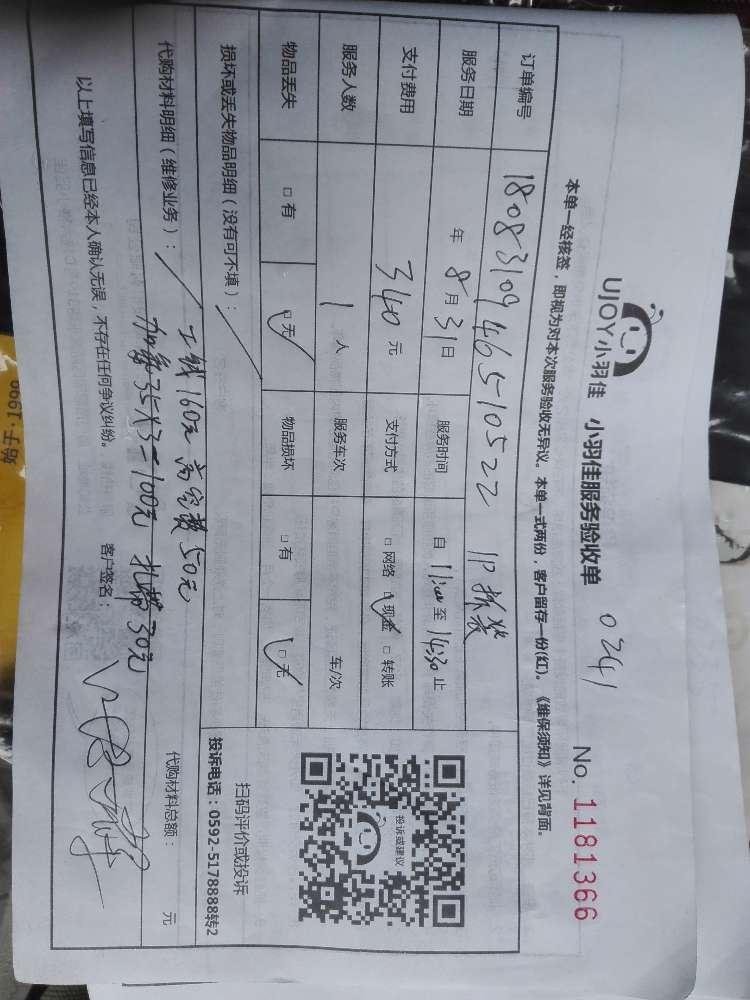 UJOY小羽佳 小羽佳服务验收单 0241 No. 1181366
本单一经核签，即视为对本次服务验收无异议。本单一式两份，客户留存一份(红)。《维保须知》详见背面。
订单编号 1808310946510522 1P拆装
服务日期 年 8月31日 服务时间 自 11:00 至 14:30 止
支付费用 340 元 支付方式 □ 网络 ☑ 现金 □ 转账
服务人数 1 人 服务车次 车/次
物品丢失 □ 有 ☑ 无 物品损坏 □ 有 ☑ 无
投诉或建议
扫码评价或投诉
投诉电话：0592-5178888转2
损坏或丢失物品明细（没有可不填）： /
代购材料明细（维修业务）： / 工钱160元 高空费50元
加氟35×3=100元 扎带30元
代购材料总额： 元
以上填写信息已经本人确认无误，不存在任何争议纠纷。 客户签名：
始于·1999